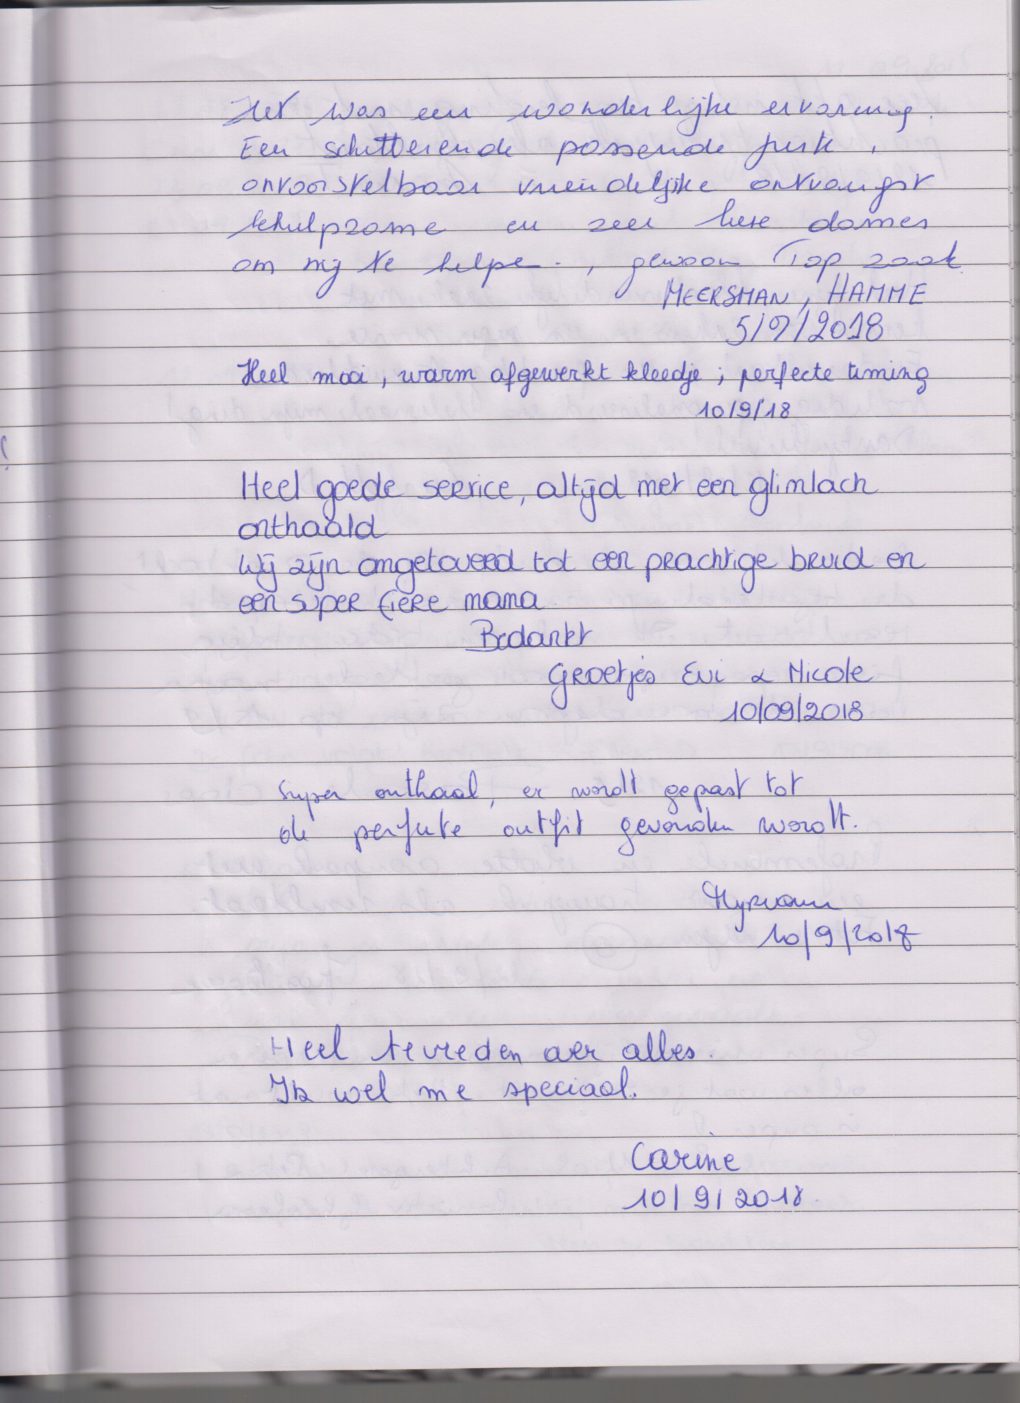 Het was een wonderlijke ervaring.
Een schitterende passende jurk,
onvoorstelbaar vriendelijke ontvangst
behulpzame en zeer lieve dames
om mij te helpe., gewoon Top zaak
MEERSMAN, HAMME
5/9/2018
Heel mooi, warm afgewerkt kleedje; perfecte timing
10/9/18
Heel goede service, altijd met een glimlach
onthaald
Wij zijn omgetoverd tot een prachtige bruid en
een super fiere mama
Bedankt
Groetjes Evi & Nicole
10/09/2018
Super onthaal, er wordt gepast tot
de perfecte outfit gevonden wordt.
10/9/2018
Heel tevreden over alles.
Ik voel me speciaal.
Carine
10/9/2018.